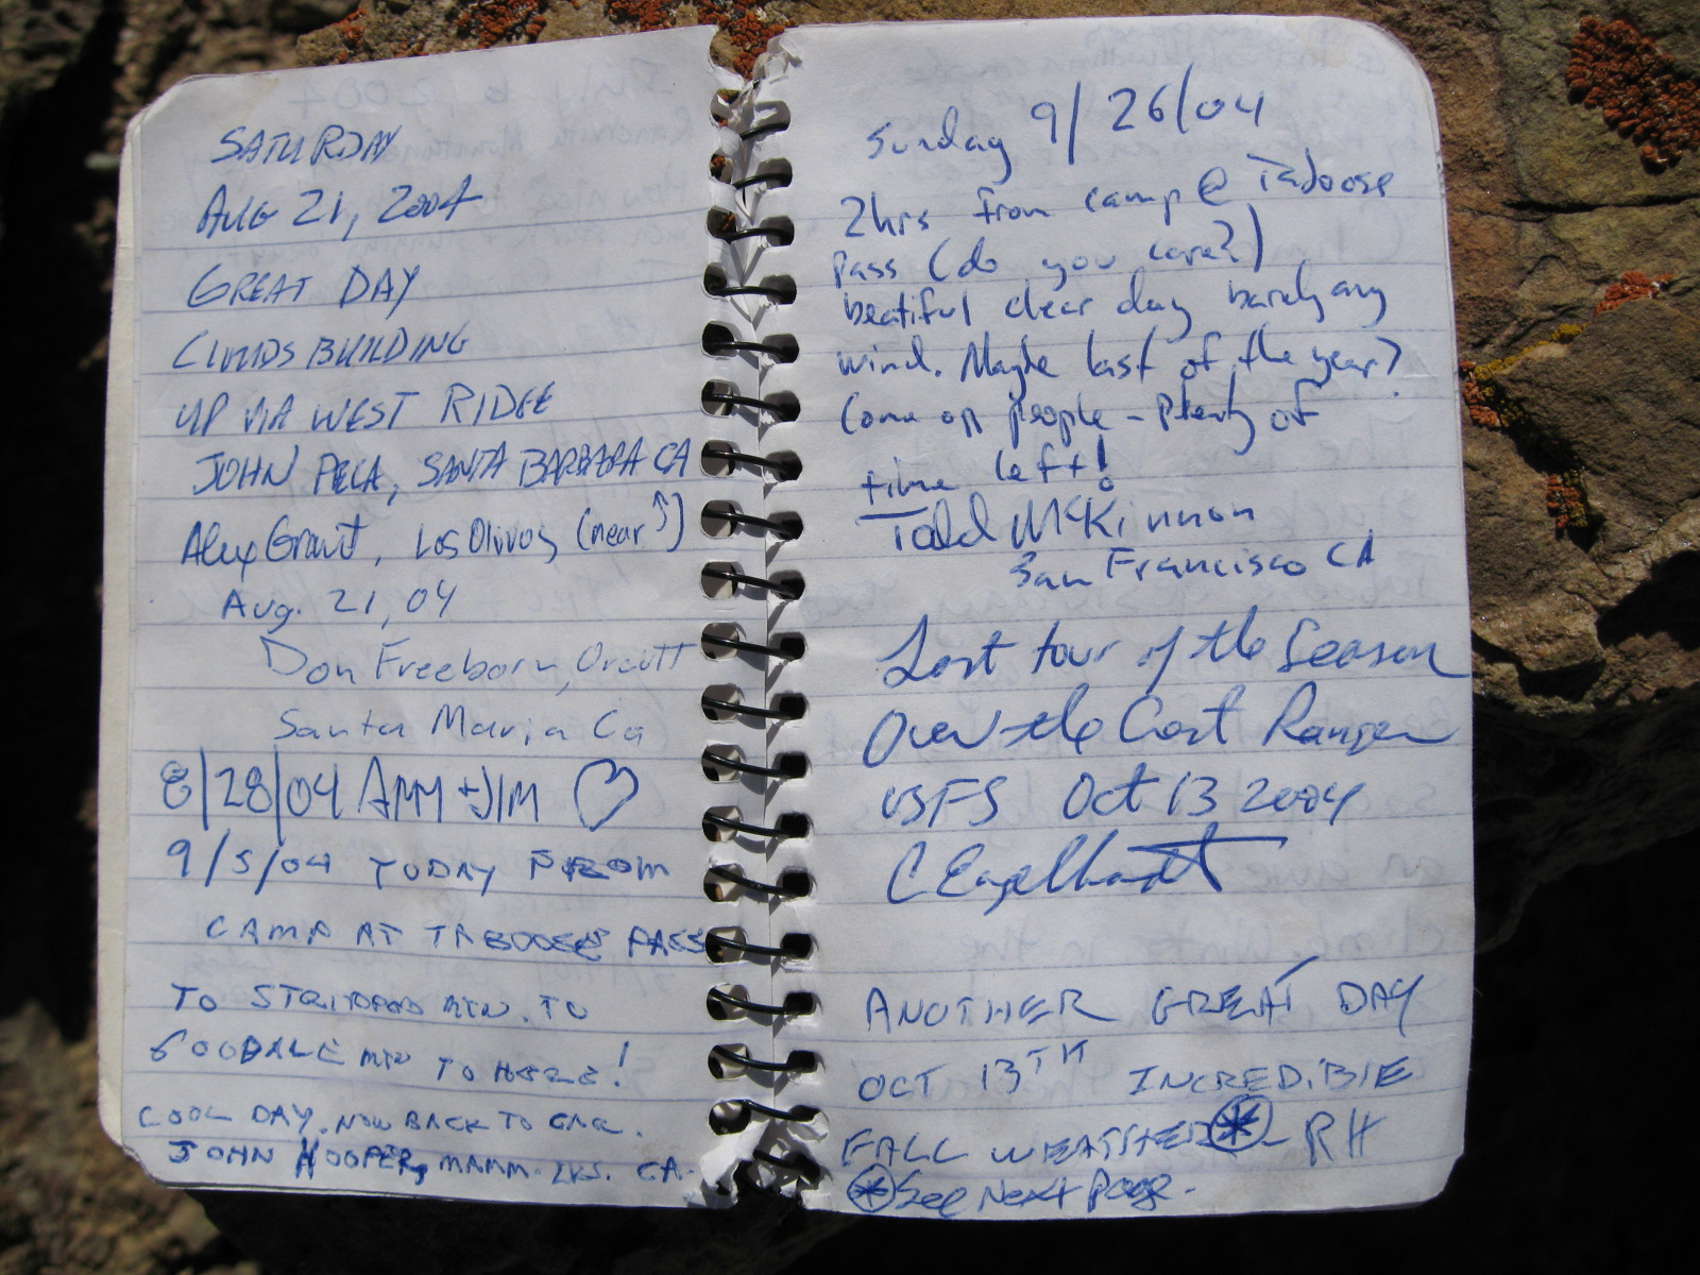 SATURDAY
AUG 21, 2004
GREAT DAY
CLOUDS BUILDING
UP VIA WEST RIDGE
JOHN PECA, SANTA BARBARA CA
Alex Grant, Los Olivos (near ↑)
Aug. 21, 04
Don Freeborn, Orcutt
Santa Maria Ca
8/28/04 AMY + JIM ♡
9/5/04 TODAY FROM
CAMP AT TABOOSE PASS
TO STRIPED MTN. TO
GOODALE MTN TO HERE!
COOL DAY. NOW BACK TO CAMP.
JOHN HOOPER, MAMM. LKS. CA.
Sunday 9/26/04
2hrs from camp @ Taboose
pass (do you care?)
beatiful clear day barely any
wind. Maybe last of the year?
Come on people - Plenty of
time left!
Todd McKinnon
San Francisco CA
Last tour of the Season
Over the Crest Ranger
USFS Oct 13 2004
C Engelhardt
ANOTHER GREAT DAY
OCT 13TH INCREDIBLE
FALL WEATHER * - RH
* See Next Page -